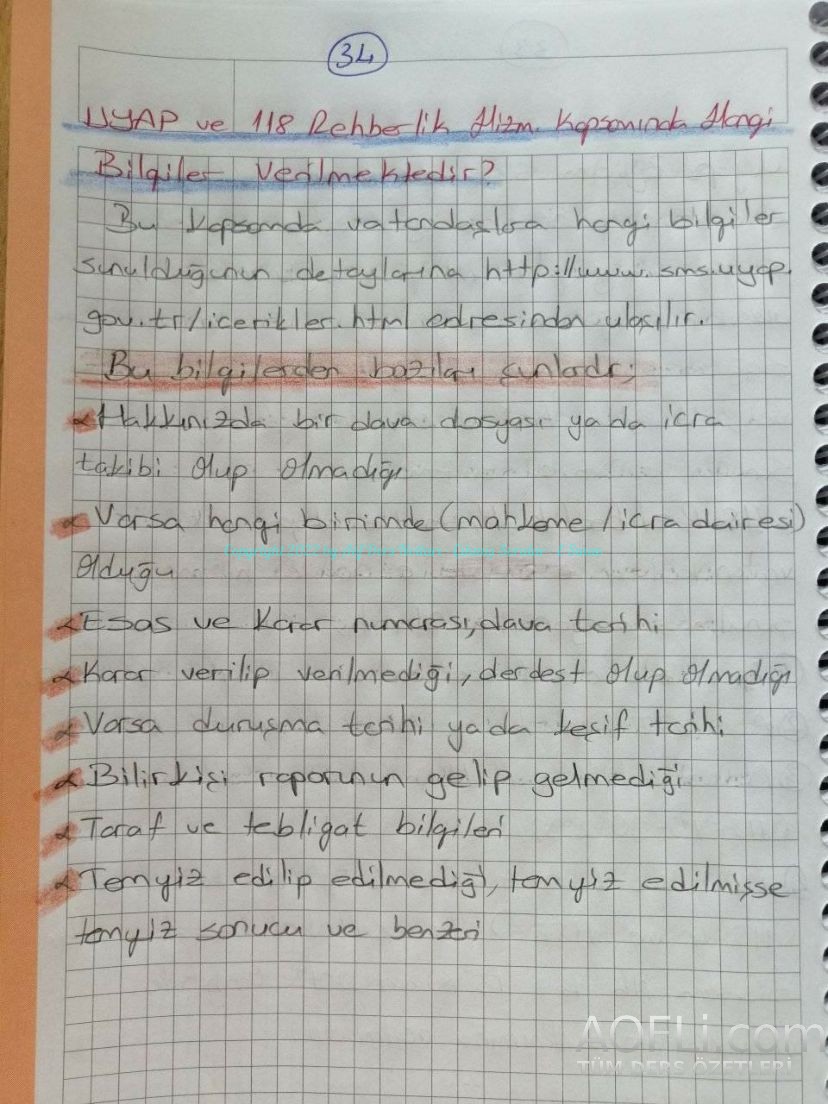 34
UYAP ve 118 Rehberlik Hizm. Kapsamında Hangi
Bilgiler Verilmektedir?
Bu kapsamda vatandaşlara hangi bilgiler
sunulduğunun detaylarına http://www.sms.uyap.
gov.tr/icerikler.html adresinden ulaşılır.
Bu bilgilerden bazıları şunlardır;
Hakkınızda bir dava dosyası ya da icra
takibi olup olmadığı
Varsa hangi birimde (mahkeme / icra dairesi)
olduğu
Esas ve Karar numarası, dava tarihi
Karar verilip verilmediği, derdest olup olmadığı
Varsa duruşma tarihi ya da keşif tarihi
Bilirkişi raporunun gelip gelmediği
Taraf ve tebligat bilgileri
Temyiz edilip edilmediği, temyiz edilmişse
temyiz sonucu ve benzeri
AOFLi.com
TÜM DERS ÖZETLERİ